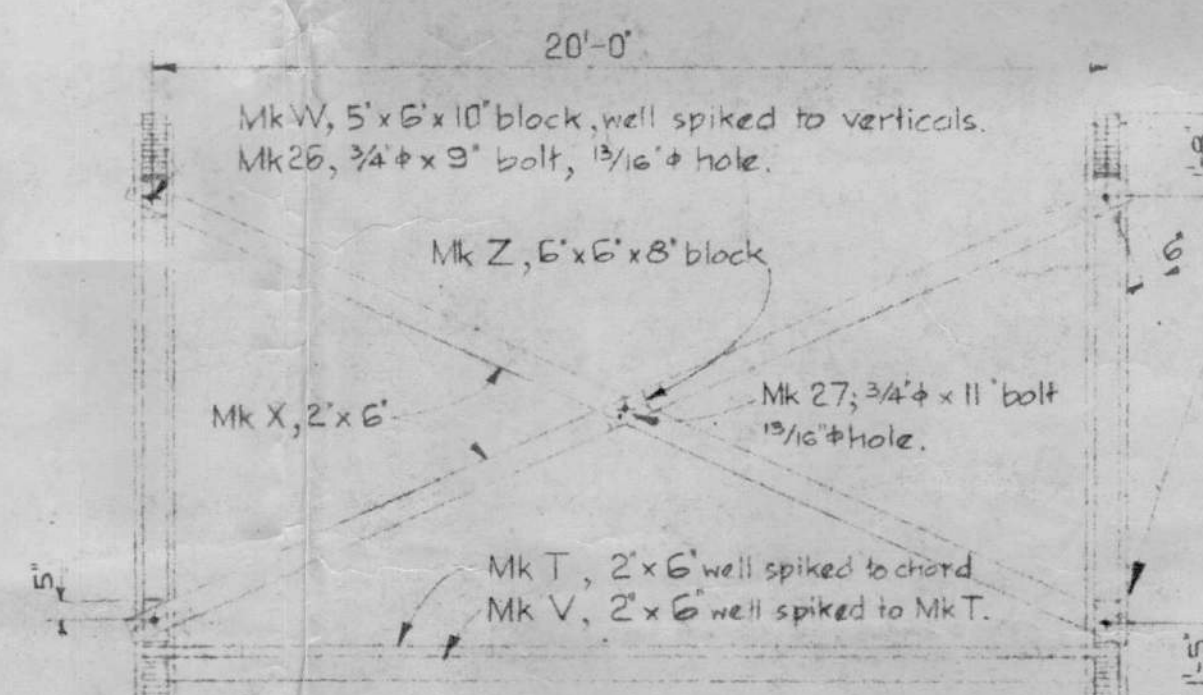 20'-0"
Mk W, 5"x6"x10" block, well spiked to verticals.
Mk 26, 3/4"ϕ x 9" bolt, 13/16"ϕ hole.
Mk Z, 6"x6"x8" block
6"
Mk X, 2"x6"
Mk 27; 3/4"ϕ x 11" bolt
13/16"ϕ hole.
5"
Mk T, 2"x6" well spiked to chord
Mk V, 2"x6" well spiked to Mk T.